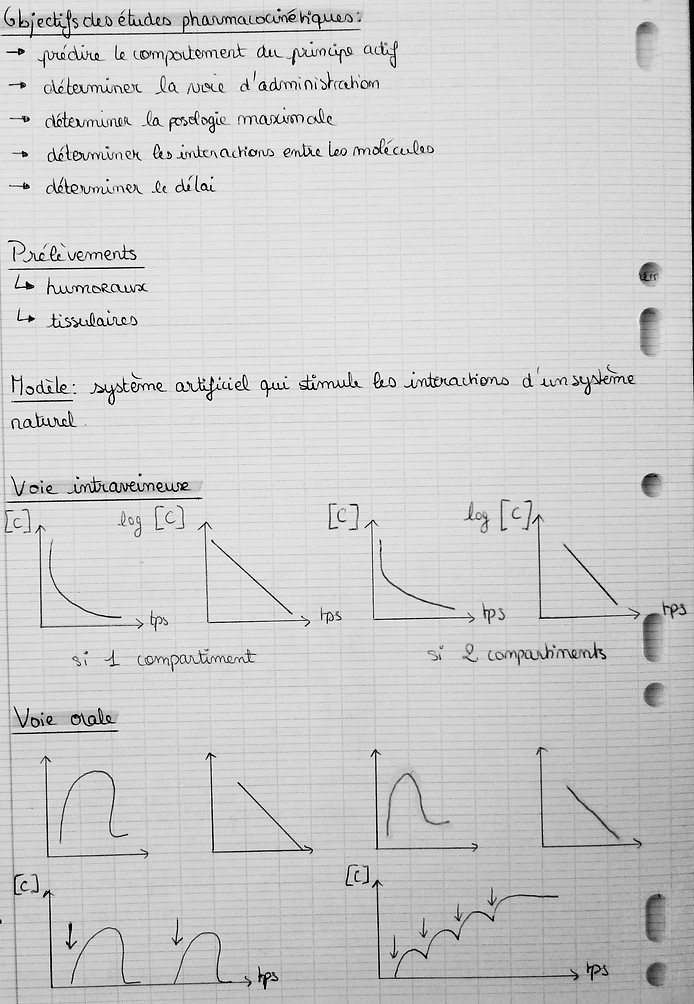 Objectifs des études pharmacocinétiques:
→ prédire le comportement du principe actif
→ déterminer la voie d'administration
→ déterminer la posologie maximale
→ déterminer les interactions entre les molécules
→ déterminer le délai
Prélèvements
↳ humoraux
↳ tissulaires
Modèle: système artificiel qui stimule les interactions d'un système
naturel.
Voie intraveineuse
[C] log [C] [C] log [C]
tps tps tps tps
si 1 compartiment si 2 compartiments
Voie orale
[C] [C]
tps tps